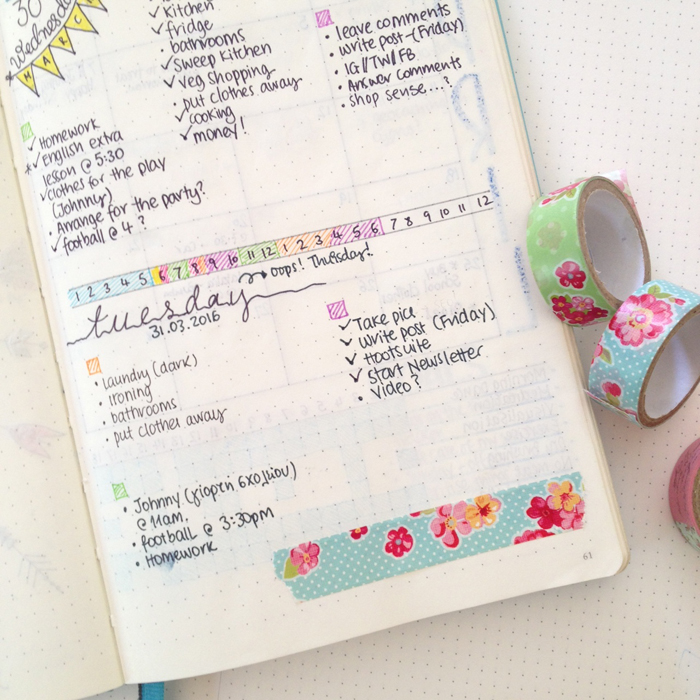 30
Wednesday
MARC
kitchen
✓ fridge
· bathrooms
✓ Sweep Kitchen
✓ Veg shopping
· put clothes away
✓ cooking
✓ money!
· leave comments
· write post-(Friday)
· IG/TW/FB
· Answer comments
· shop sense...?
✓ Homework
*✓ English extra
lesson @ 5:30
✓ clothes for the play
(Johnny)
· Arrange for the party?
✓ football @ 4 ?
1 2 3 4 5 6 7 8 9 10 11 12 1 2 3 4 5 6 7 8 9 10 11 12
tuesday → oops! Thursday!
31.03.2016
· laundry (dark)
· Ironing
· bathrooms
· put clothes away
✓ Take pics
✓ write post (Friday)
✓ Hootsuite
✓ Start Newsletter
· Video?
· Johnny (γιορτή σχολείου)
@ 11am.
· football @ 3:30pm
· Homework
61